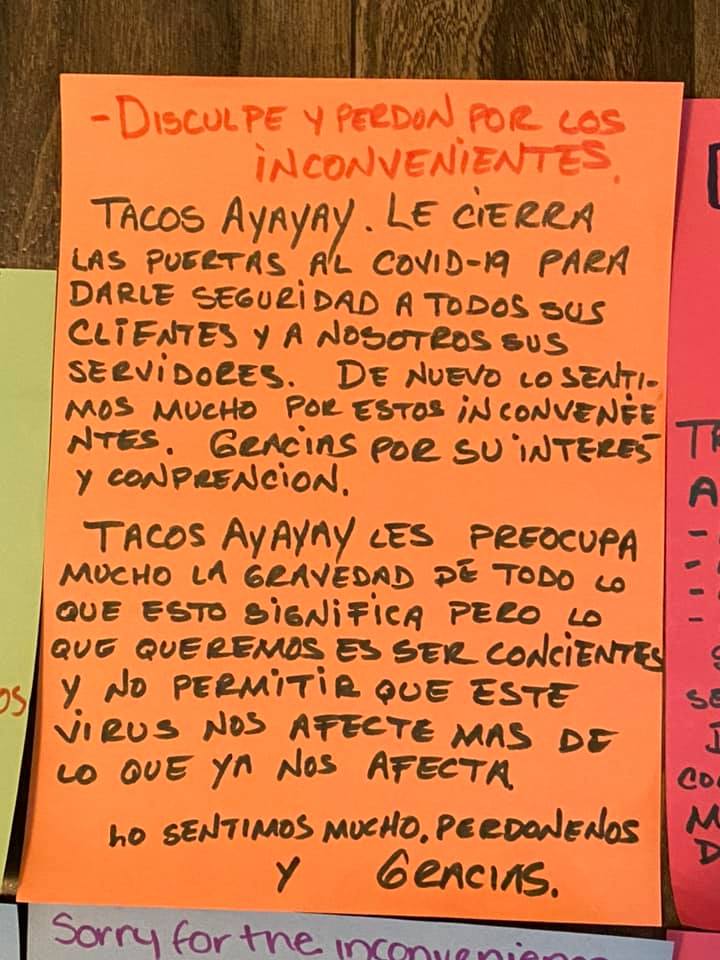 - DISCULPE Y PERDON POR LOS
INCONVENIENTES.
TACOS AYAYAY. LE CIERRA
LAS PUERTAS AL COVID-19 PARA
DARLE SEGURIDAD A TODOS SUS
CLIENTES Y A NOSOTROS SUS
SERVIDORES. DE NUEVO LO SENTI-
MOS MUCHO POR ESTOS INCONVENEE
NTES. GRACIAS POR SU INTERES
Y CONPRENCION.
TACOS AYAYAY LES PREOCUPA
MUCHO LA GRAVEDAD DE TODO LO
QUE ESTO SIGNIFICA PERO LO
QUE QUEREMOS ES SER CONCIENTES
Y NO PERMITIR QUE ESTE
VIRUS NOS AFECTE MAS DE
LO QUE YA NOS AFECTA.
LO SENTIMOS MUCHO. PERDONENOS
Y GRACIAS.
Sorry for the inconvenience